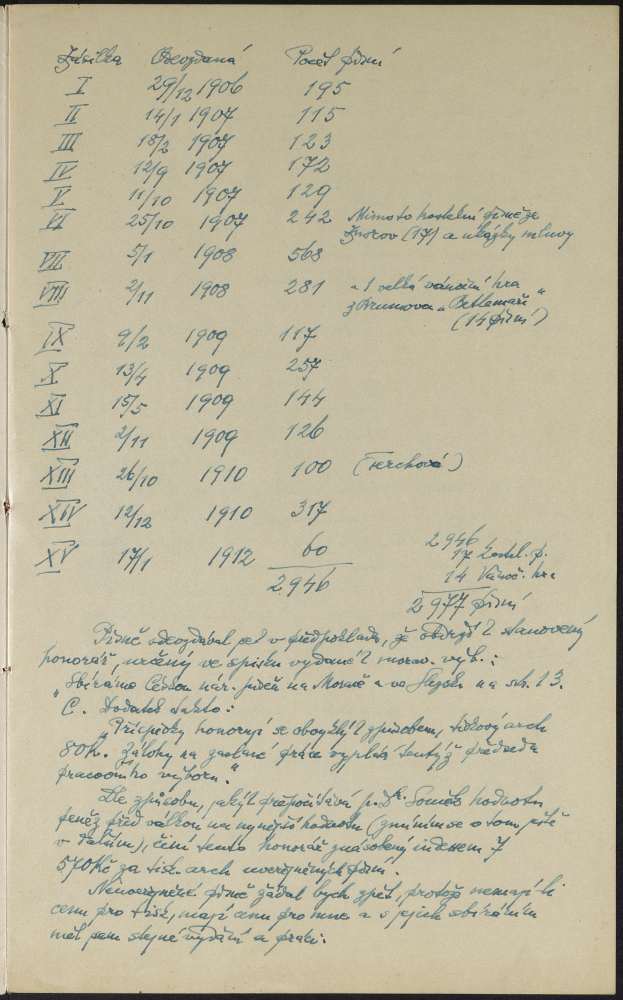 Zásilka Odevzdaná Počet písní
I 29/12 1906 195
II 14/1 1907 115
III 18/2 1907 123
IV 12/9 1907 172
V 11/10 1907 129
VI 25/10 1907 242 Mimo to kostelní písně ze
(17) a ukázky mluvy
VII 5/1 1908 568
VIII 2/11 1908 281 a 1 velká vánoční hra
z Brumova „Betlemáři"
(14 písní)
IX 9/2 1909 117
X 13/4 1909 257
XI 15/5 1909 144
XII 2/11 1909 126
XIII 26/10 1910 100 (Terchová)
XIV 12/12 1910 317
XV 17/1 1912 60
2946
2946
17 kostel. p.
14 Vánoč. hra
2977 písní
Písně odevzdával jsem v předpokladu, že obdržím stanovený
honorář, určený ve spisku vydaném morav. výb.:
„Sbíráme českou nár. píseň na Moravě a ve Slezsku na str. 13.
C. Dodatek takto:
„Příspěvky honorují se obvyklým způsobem, tiskový arch
80 K. Zálohy na zaslané práce vyplácí tentýž předseda
pracovního výboru."
Dle způsobu, jakým přepočítává p. Dr. Souček hodnotu
peněz před válkou na nynější hodnotu (zmíním se o tom ještě
v dalším), činí tento honorář znásobený indexem 7
570 Kč za tisk. arch uveřejněných písní.
Neuveřejněné písně žádal bych zpět, protože nemají-li
cenu pro tisk, mají cenu pro mne a s jejich sbíráním
měl jsem stejné vydání a práci.